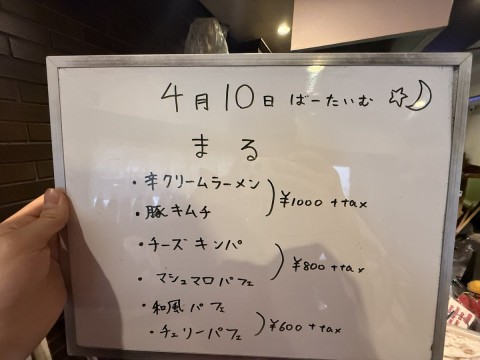 4月10日 ばーたいむ
まる
・辛クリームラーメン
・豚キムチ
¥1000 +tax
・チーズキンパ
・マシュマロパフェ
¥800 +tax
・和風パフェ
・チェリーパフェ
¥600 +tax